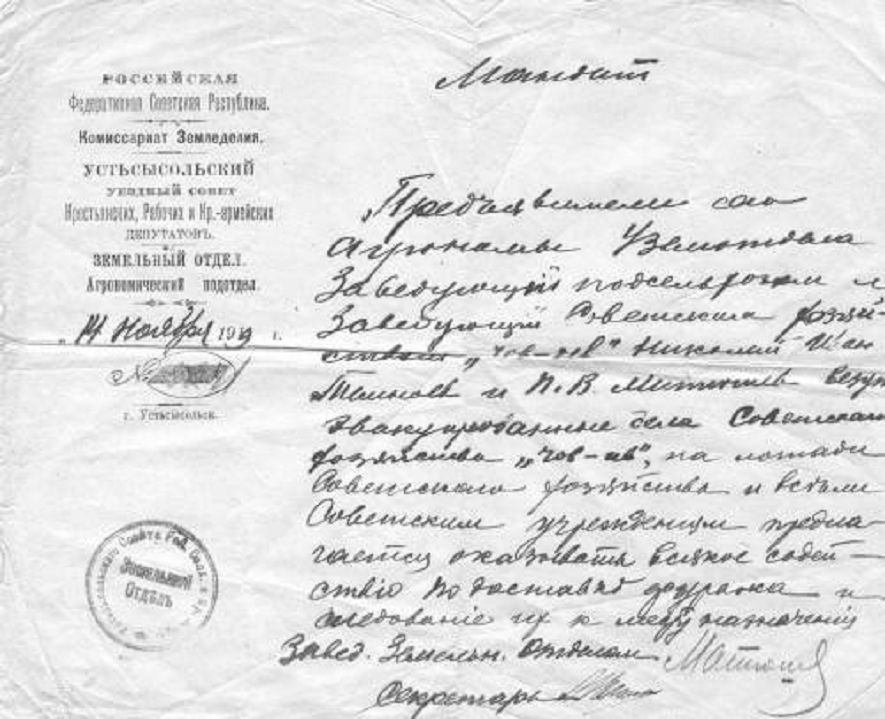 РОССІЙСКАЯ
Федеративная Советская Республика.
Комиссариат Земледелия.
УСТЬСЫСОЛЬСКИЙ
УѢЗДНЫЙ СОВЕТ
Крестьянских, Рабочих и Кр.-армейских
ДЕПУТАТОВЪ.
ЗЕМЕЛЬНЫЙ ОТДЕЛ.
Агрономический подотдел.
"14" Ноября 1919 г.
№
г. Устьсысольск.
Земельный
Отдѣлъ
Мандат
Предъявители сего
Агрономы Уземотдела
Заведующий подсельхозом и
Заведующий Советским хозяй-
ством "Чов-ю" Николай Иван
и П. В. Митюшев везут
эвакуированные дела Советского
хозяйства "Чов-ю", на лошади
Советского хозяйства и всем
Советским учреждениям предла-
гается оказывать всякое содей-
ствіе по доставке и
следование их к месту назначения
Завед. Земельн. Отделом
Секретарь